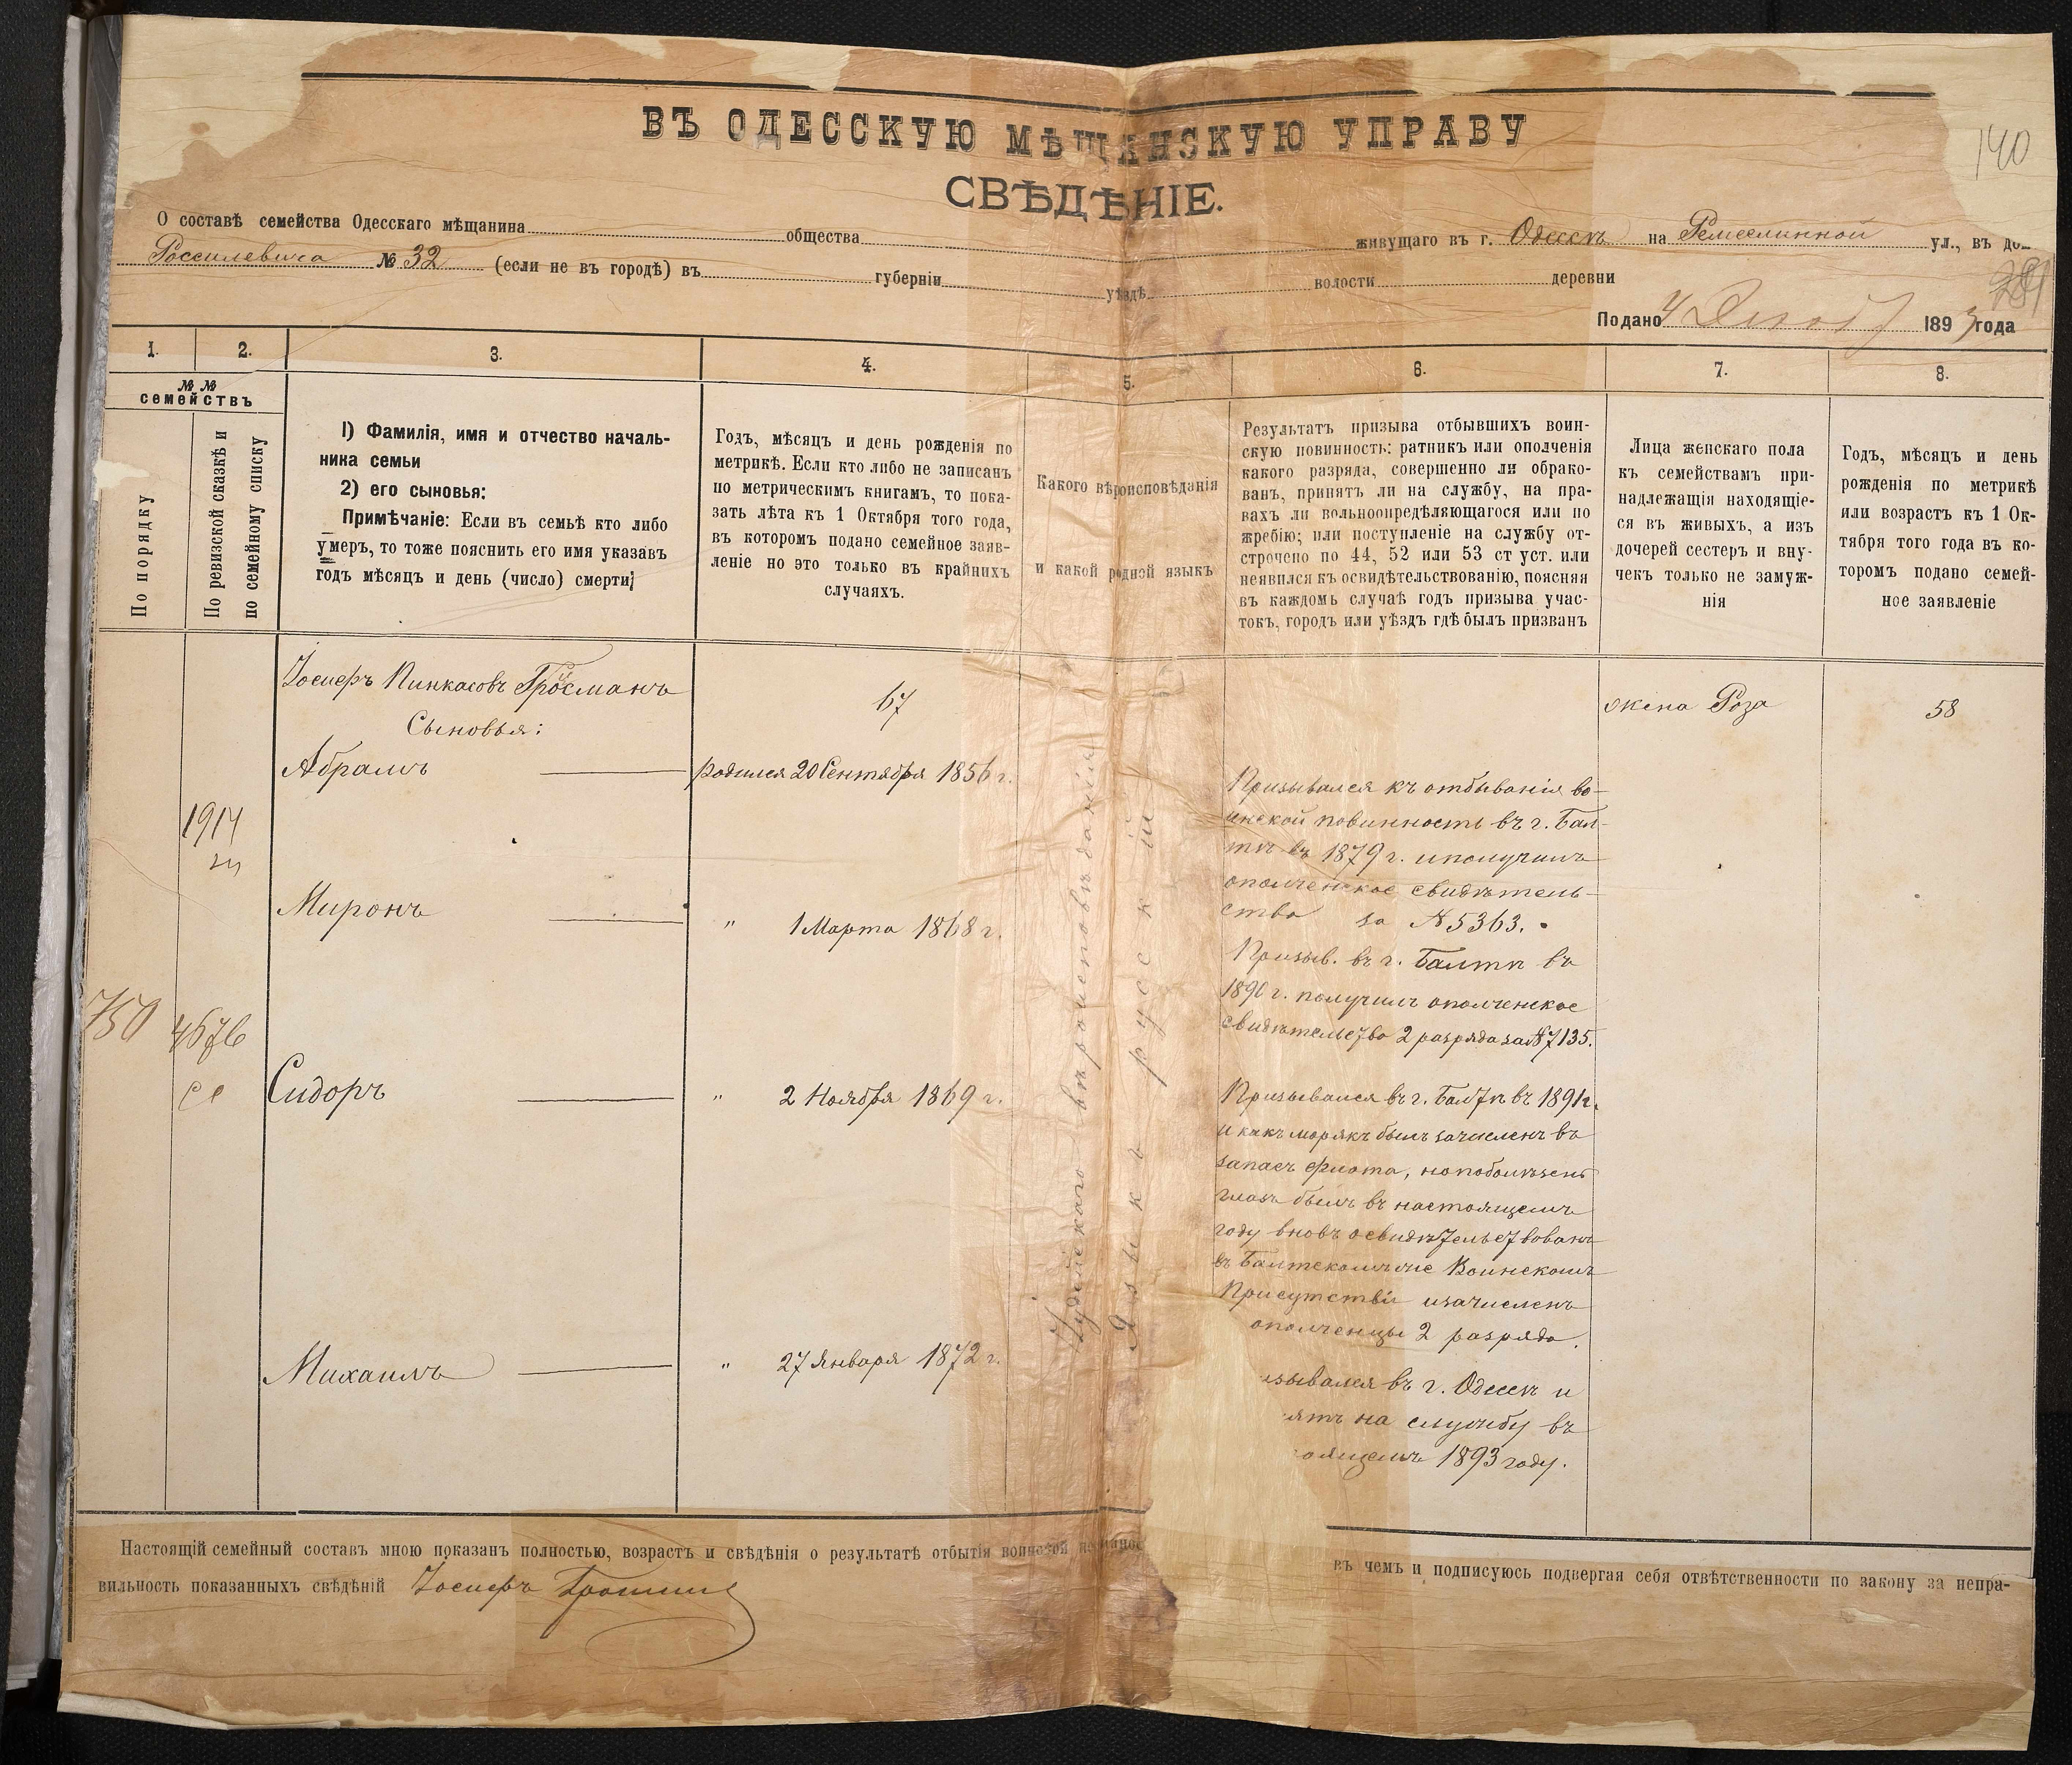 ВЪ ОДЕССКУЮ МѢЩАНСКУЮ УПРАВУ
140
СВѢДѢНІЕ.
О составѣ семейства Одесскаго мѣщанина общества живущаго въ г. Одессѣ на Ремесленной ул., въ до
Россилевича № 32 (если не въ городѣ) въ губерніи уѣздѣ волости деревни
Подано 4 1893 года
1. 2. 3. 4. 5. 6. 7. 8.
№ №
семействъ
По порядку
По ревизской сказкѣ и
по семейному списку
1) Фамилія, имя и отчество началь-
ника семьи
2) его сыновья:
Примѣчаніе: Если въ семьѣ кто либо
умеръ, то тоже пояснить его имя указавъ
годъ мѣсяцъ и день (число) смерти;
Годъ, мѣсяцъ и день рожденія по
метрикѣ. Если кто либо не записанъ
по метрическимъ книгамъ, то пока-
зать лѣта къ 1 Октября того года,
въ которомъ подано семейное заяв-
леніе но это только въ крайнихъ
случаяхъ.
Какого вѣроисповѣданія
и какой родной языкъ
Результатъ призыва отбывшихъ воин-
скую повинность: ратникъ или ополченія
какого разряда, совершенно ли обрако-
ванъ, принятъ ли на службу, на пра-
вахъ ли вольноопредѣляющагося или по
жребію; или поступленіе на службу от-
строчено по 44, 52 или 53 ст уст. или
неявился къ освидѣтельствованію, поясняя
въ каждомъ случаѣ годъ призыва учас-
токъ, городъ или уѣздъ гдѣ былъ призванъ
Лица женскаго пола
къ семействамъ при-
надлежащія находящіе-
ся въ живыхъ, а изъ
дочерей сестеръ и вну-
чекъ только не замуж-
нія
Годъ, мѣсяцъ и день
рожденія по метрикѣ
или возрастъ къ 1 Ок-
тября того года въ ко-
торомъ подано семей-
ное заявленіе
Іосифъ Пинкасовъ Гросманъ 67 жена Роза 58
Сыновья:
Абрамъ родился 20 Сентября 1856 г.
Призывался къ отбыванію во-
инской повинность въ г. Бал-
тѣ въ 1879 г. и получилъ
ополченское свидѣтель-
ство за № 5363.
1914
Миронъ " 1 Марта 1868 г.
Призыв. въ г. Балтѣ въ
1890 г. получилъ ополченское
свидѣтельство 2 разряда за № 7135.
750
4676
Сидоръ " 2 Ноября 1869 г.
Призывался въ г. Балтѣ въ 1891 г.
и какъ морякъ былъ зачисленъ въ
запасъ флота, но по болѣзни
глазъ былъ въ настоящемъ
году вновь освидѣтельствованъ
въ Балтскомъ Воинскомъ
Присутствіи и зачисленъ
ополченцы 2 разряда.
Михаилъ " 27 Января 1872 г.
зывался въ г. Одессѣ и
ятъ на службу въ
оящемъ 1893 году.
Іудейскаго вѣроисповѣданія
Языкъ русскій
Настоящій семейный составъ мною показанъ полностью, возрастъ и свѣдѣнія о результатѣ отбытія воинской въ чемъ и подписуюсь подвергая себя отвѣтственности по закону за непра-
вильность показанныхъ свѣдѣній Іосифъ